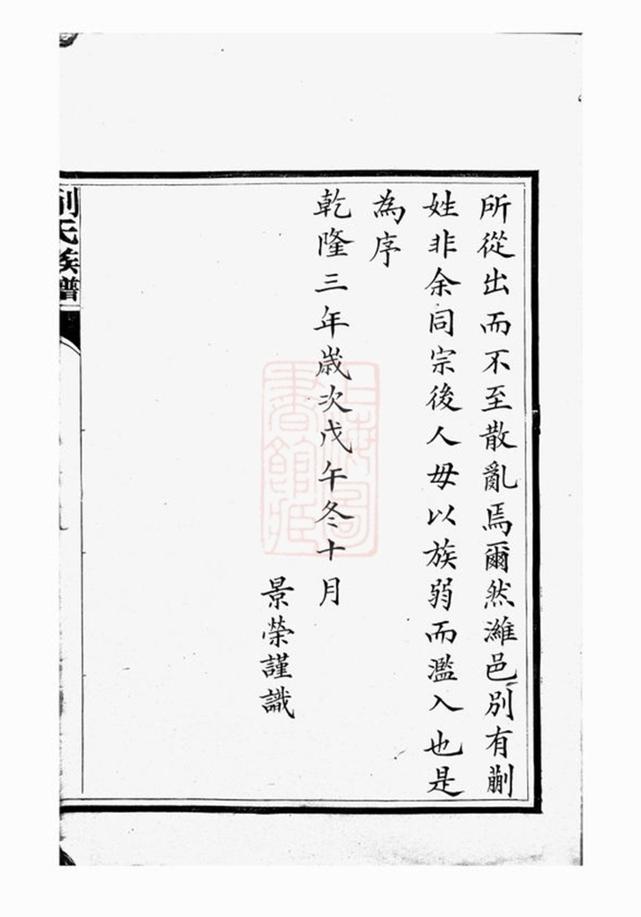 所從出而不至散亂焉爾然濰邑別有蒯
姓非余同宗後人毋以族弱而濫入也是
為序
乾隆三年歲次戊午冬十月
景榮謹識
氏族譜
上海圖書館藏